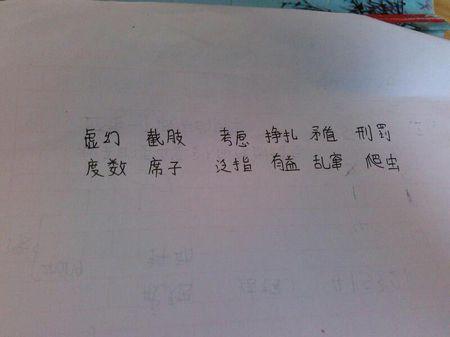 虚幻 截肢 考虑 挣扎 矛盾 刑罚
度数 席子 泛指 有益 乱窜 爬虫